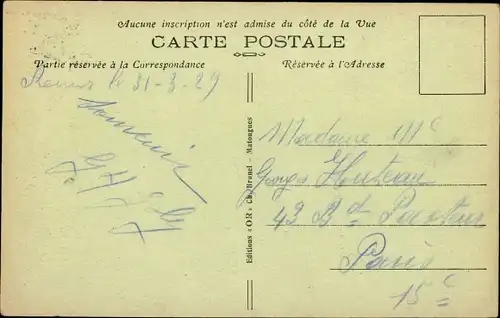 Aucune inscription n'est admise du côté de la Vue
CARTE POSTALE
Partie réservée à la Correspondance
Réservée à l'Adresse
Reims le 31-3-29
Souvenir
Editions "OR" Ch. Brunel - Matougues
Madame
Georges
43 Bd Pasteur
Paris
15e